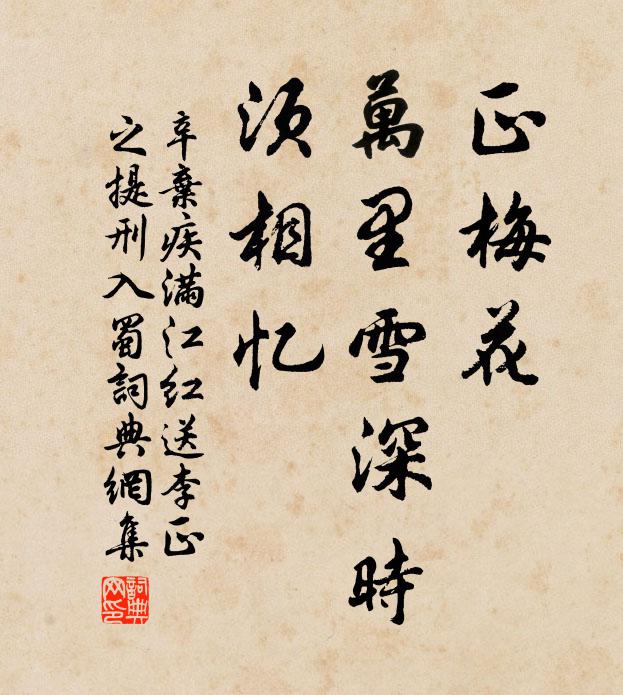 正梅花
萬里雪深時
須相忆
辛棄疾滿江紅送李正
之提刑入蜀詞典網集
詞典網印